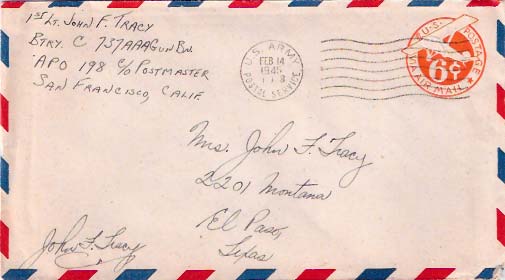 1st Lt. John F. Tracy
Btry. C 737 AAA Gun Bn.
APO 198 c/o Postmaster
San Francisco, Calif.
U.S. ARMY
FEB 14
1945
POSTAL SERVICE
U.S. POSTAGE
6¢
VIA AIR MAIL
Mrs. John F. Tracy
2201 Montana
El Paso,
Texas
John F. Tracy